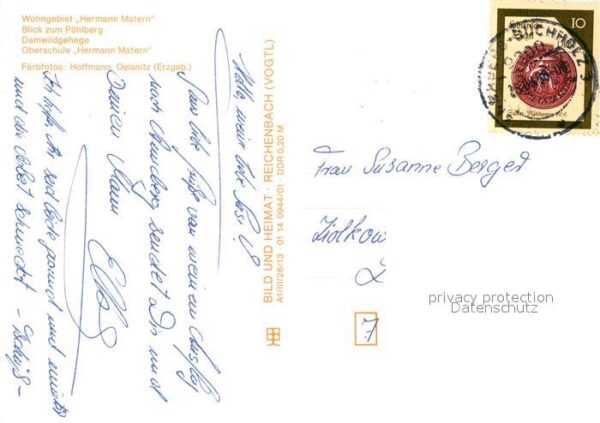 Wohngebiet „Hermann Matern"
Blick zum Pöhlberg
Damwildgehege
Oberschule „Hermann Matern"
Farbfotos: Hoffmann, Oelsnitz (Erzgeb.)
Hallo, meine liebe Susi!
liebe Grüße von meinem Ausflug
nach Annaberg sendet Dir und
Deinem Mann
Ich hoffe Ihr seid gesund und munter
und die Arbeit schmeckt - Tschüß -
BILD UND HEIMAT · REICHENBACH (VOGTL)
A1/III/26/13 · 01 14 0944/01 · DDR 0,20 M
10
BUCHHOLZ 3
Frau Susanne Berger
Zíolkow
2
7
privacy protection
Datenschutz